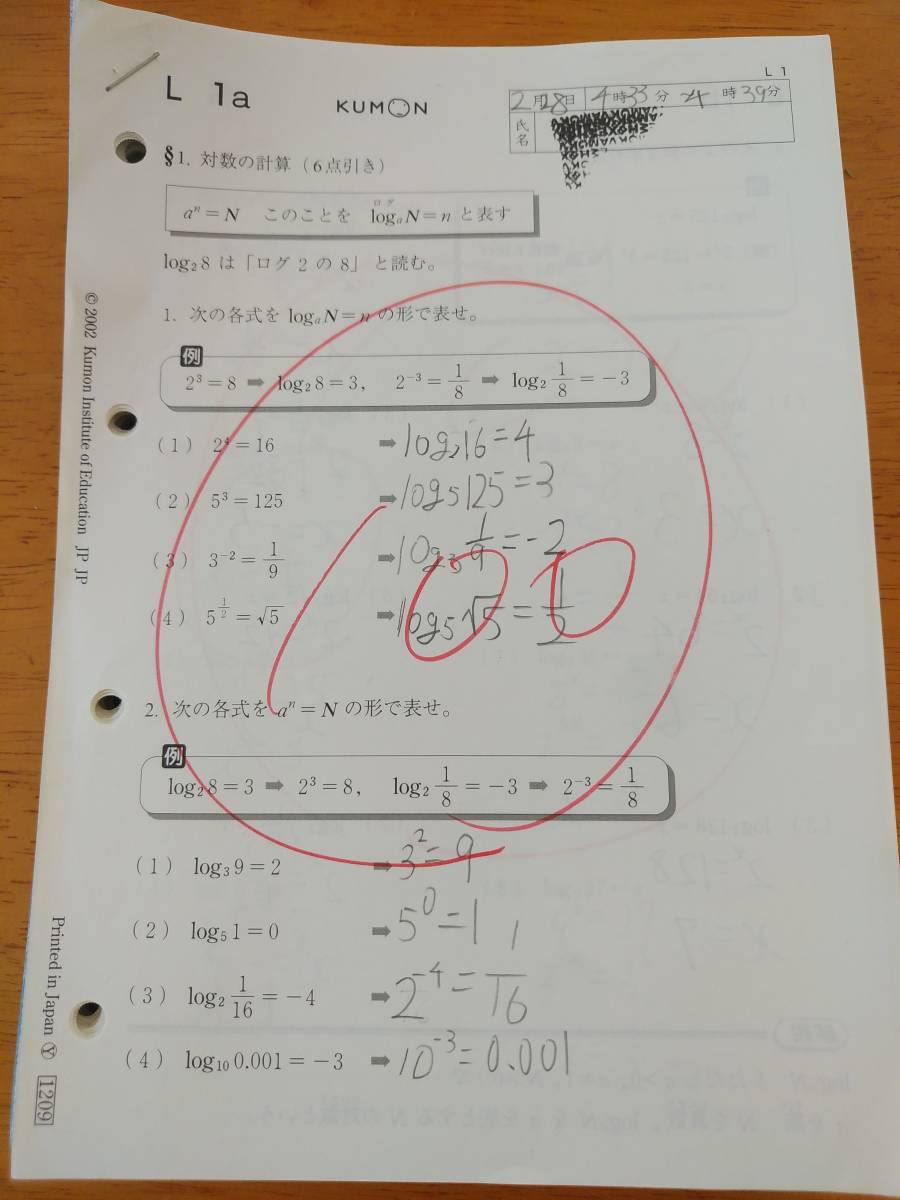 L 1a
KUMON
L 1
2月28日 4時33分 4時39分
氏名
§1. 対数の計算（6点引き）
aⁿ＝N このことを logₐN＝n と表す
ログ
log₂8 は「ログ 2 の 8」と読む。
1. 次の各式を logₐN＝n の形で表せ。
例
2³＝8 ➡ log₂8＝3， 2⁻³＝1/8 ➡ log₂ 1/8＝−3
(1) 2⁴＝16 ➡ log₂16＝4
(2) 5³＝125 ➡ log₅125＝3
(3) 3⁻²＝1/9 ➡ log₃ 1/9＝-2
(4) 5^(1/2)＝√5 ➡ log₅√5＝1/2
100
2. 次の各式を aⁿ＝N の形で表せ。
例
log₂8＝3 ➡ 2³＝8， log₂ 1/8＝−3 ➡ 2⁻³＝1/8
(1) log₃9＝2 ➡ 3²＝9
(2) log₅1＝0 ➡ 5⁰＝1
(3) log₂ 1/16＝−4 ➡ 2⁻⁴＝1/16
(4) log₁₀0.001＝−3 ➡ 10⁻³＝0.001
© 2002 Kumon Institute of Education JP JP
Printed in Japan Ⓨ 1209